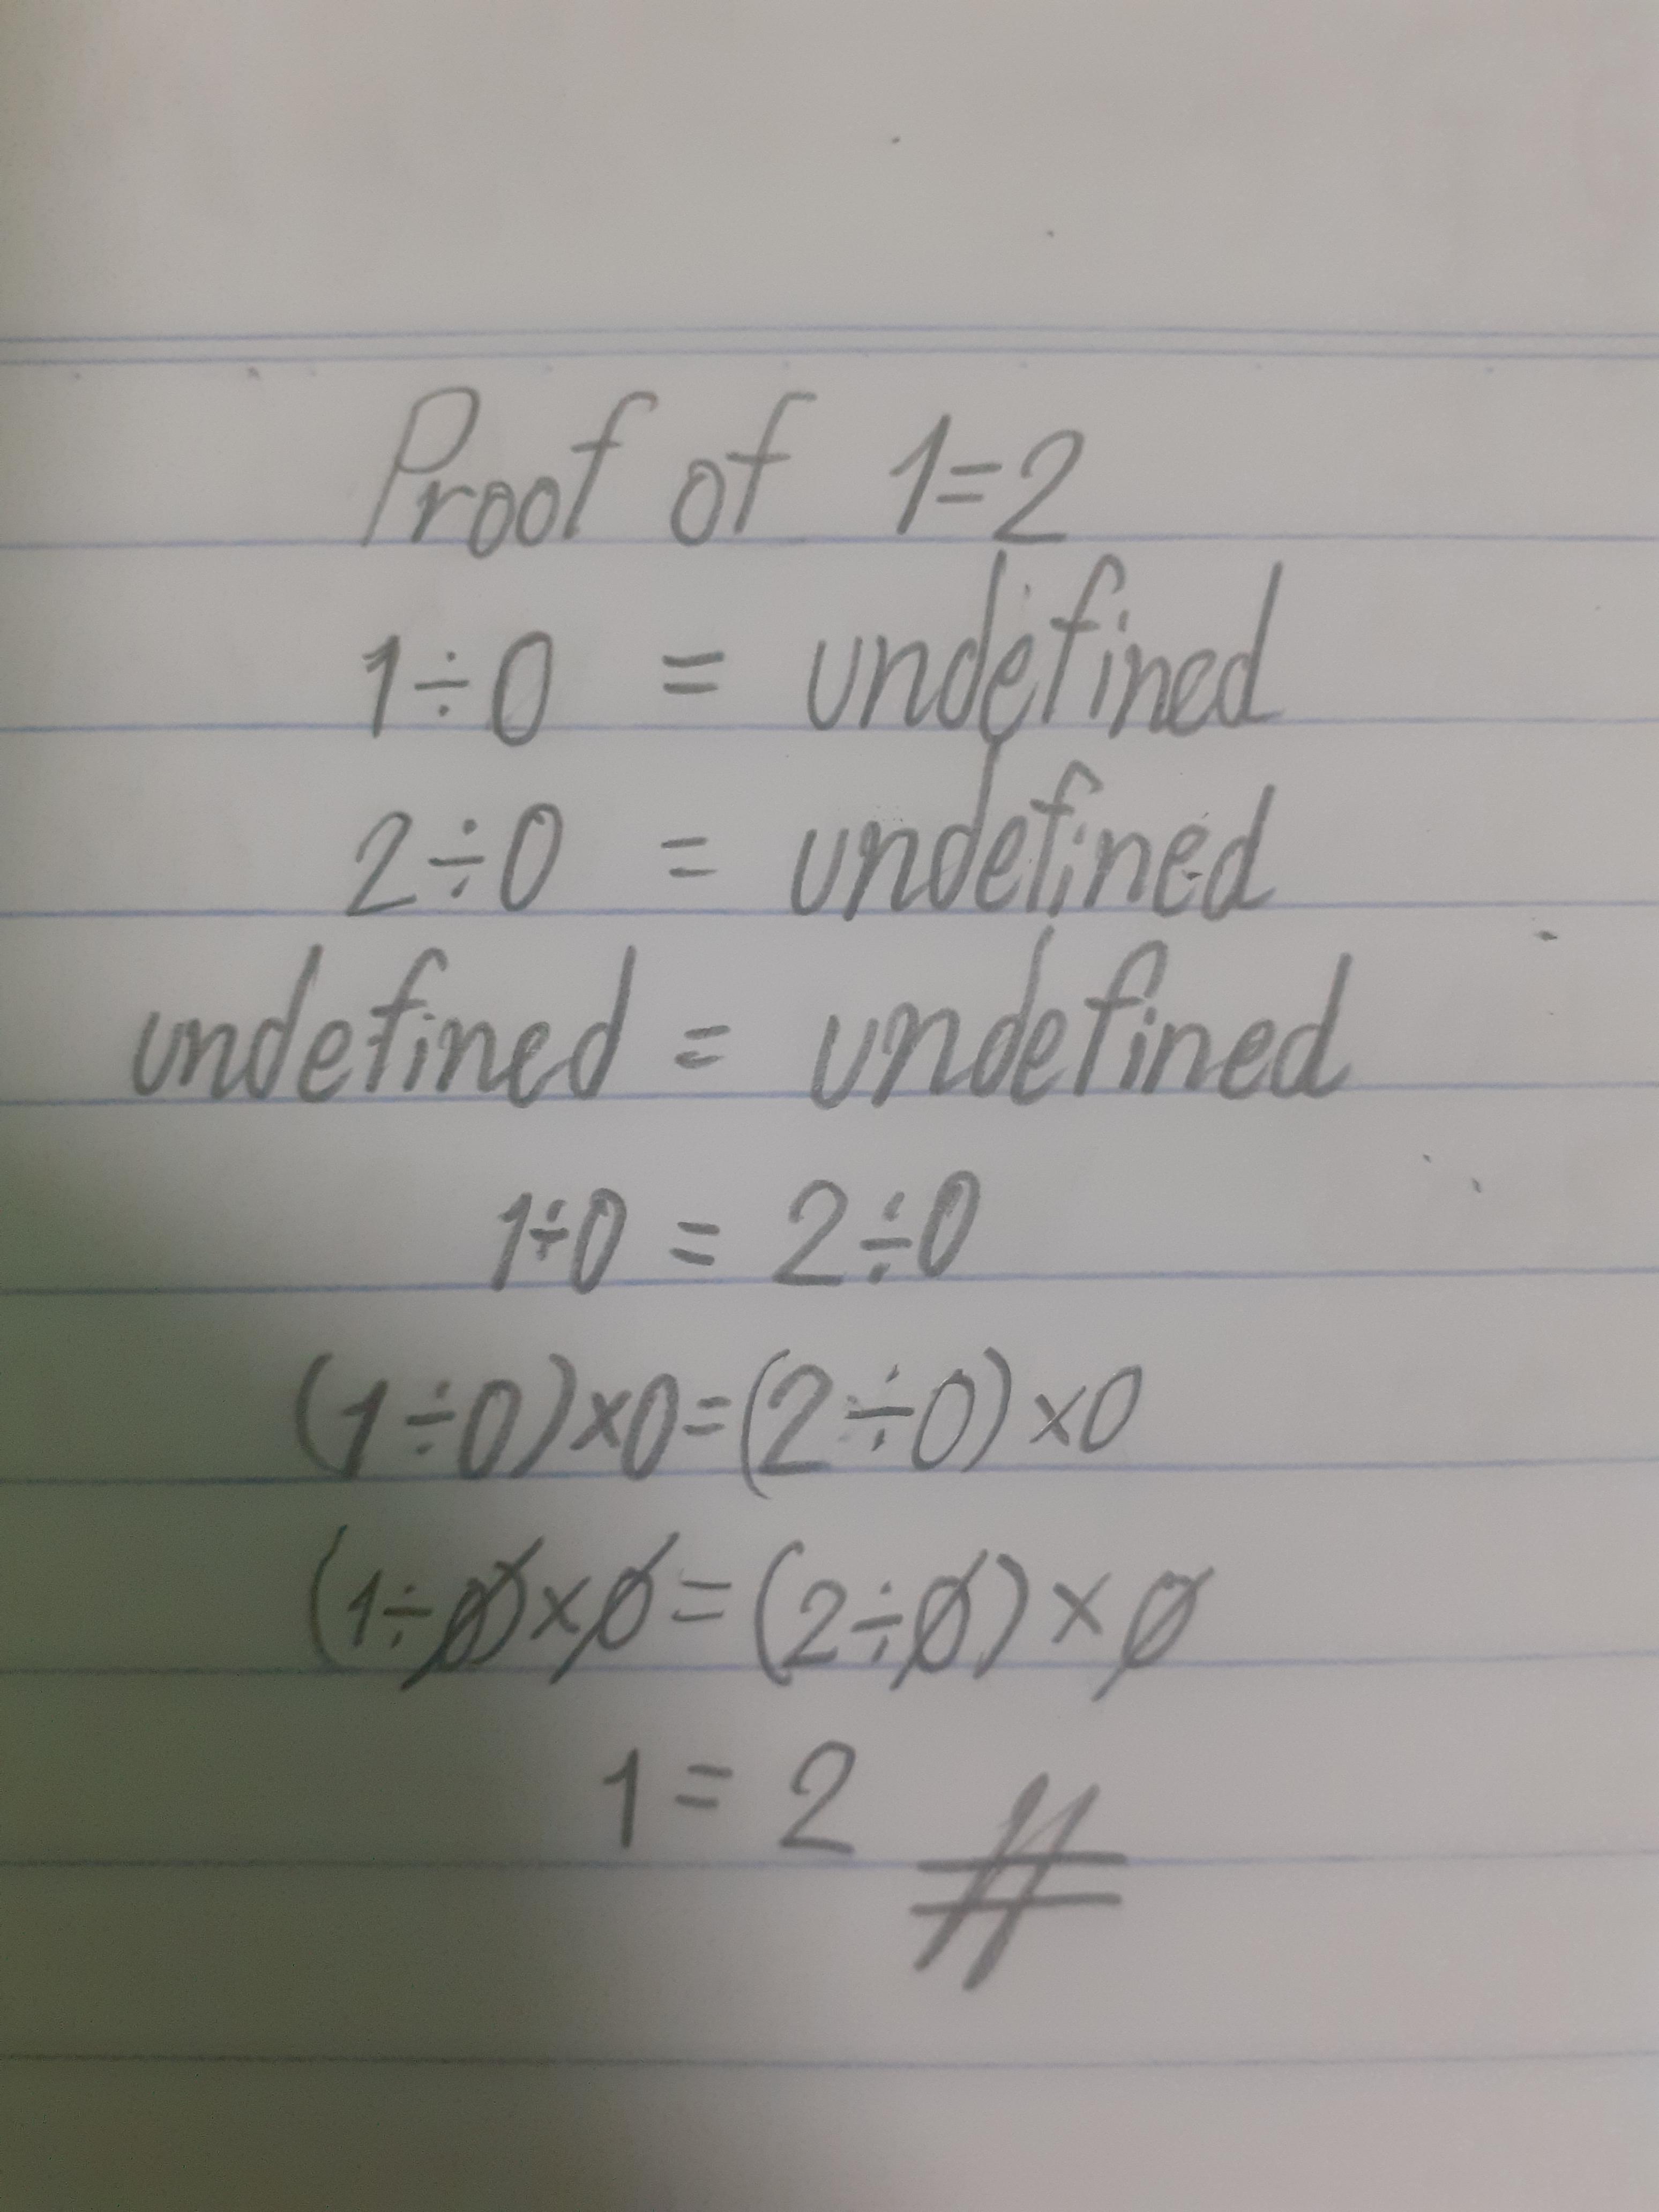 Proof of 1=2
1÷0 = undefined
2÷0 = undefined
undefined = undefined
1÷0 = 2÷0
(1÷0)×0=(2÷0)×0
(1÷0)×0=(2÷0)×0
1 = 2 #